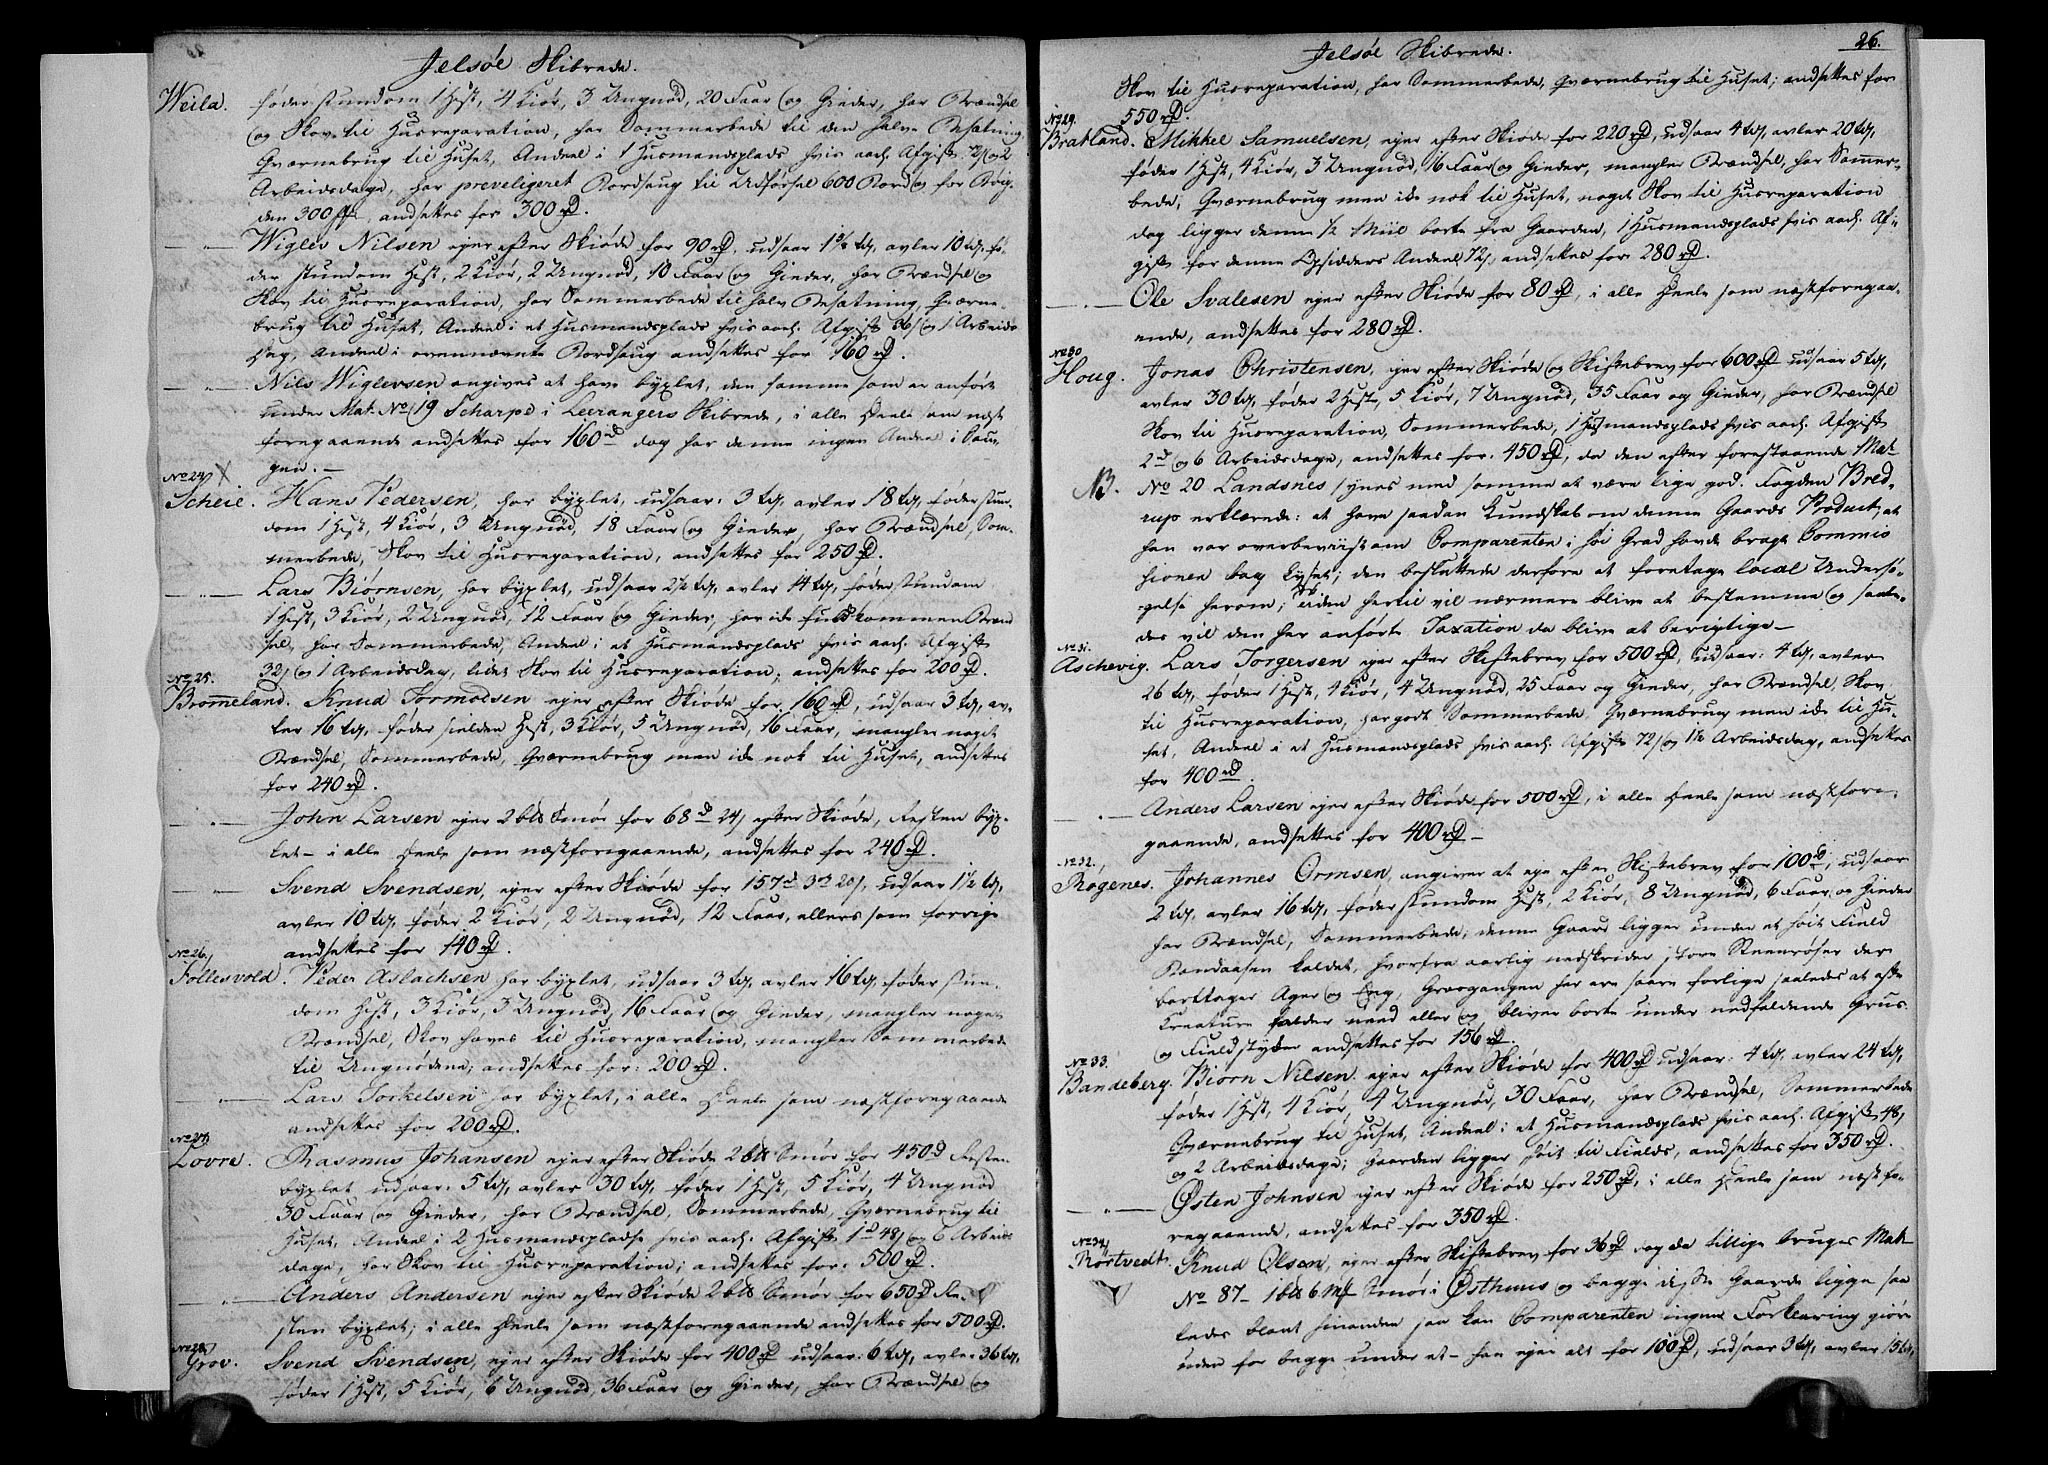 Jelsøe Skibrede.
Weila. føder stundom 1 Hest, 4 Kiør, 3 Ungnød, 20 Faar og Gieder, har Brændsel
og Skov til Husreparation, har Sommerbede til den halve Besætning,
Qværnebrug til Huset, Andeel i 1 Husmandsplads hvis aarl. Afgift 72 s og 2
Arbeidsdage, har preveligeret Bordsaug til Udførsel 600 Bord og for Bøig-
den 300, andsettes for 300 rd.
— " — Wiglev Nilsen ejer efter Skiøde for 90 rd, udsaar 1 3/4 td, avler 10 td, fø-
der stundom Hest, 2 Kiør, 2 Ungnød, 10 Faar og Gieder, har Brændsel og
Skov til Husreparation, har Sommerbede til halv Besætning, Qværne-
brug til Huset, Andeel i et Husmandsplads hvis aarl. Afgift 36 s og 1 Arbeids
Dag, Andeel i ovennævnte Bordsaug andsettes for 160 rd.
— " — Nils Wiglevsen angives at have byxlet, den samme som er anført
under Mat. No 19 Scharpe i Leerangers Skibrede, i alle Deele som næst
foregaaende andsettes for 160 rd dog har denne ingen Andeel i Sau-
gen. —
No 24 X
Scheie. Hans Pedersen, har byxlet, udsaar: 3 td, avler 18 td, føder stun-
dom 1 Hest, 4 Kiør, 3 Ungnød, 18 Faar og Gieder, har Brændsel, Som-
merbede, Skov til Husreparation, andsettes for 250 rd.
— " — Lars Biørnsen, har byxlet, udsaar 2 1/2 td, avler 14 td, føder stundom
1 Hest, 3 Kiør, 2 Ungnød, 12 Faar og Gieder, har ide fuldkommen Brænd
sel, har Sommerbede, Andeel i et Husmandsplads hvis aarl. Afgift
32 s og 1 Arbeidsdag, lidet Skov til Husreparation; andsettes for 200 rd.
No 25.
Bromeland. Knud Tormodsen ejer efter Skiøde for 160 rd, udsaar 3 td, av-
ler 16 td, føder sielden Hest, 3 Kiør, 5 Ungnød, 16 Faar, mangler noget
Brændsel, Sommerbede, Qværnebrug men ide nok til Huset, andsettes
for 240 rd.
— " — John Larsen ejer 2 bls Smør for 68 d 24 s efter Skiøde, Resten byx-
let — i alle Deele som næstforegaaende, andsettes for 240 rd.
— " — Svend Svendsen, ejer efter Skiøde for 157 d 3 20 s, udsaar 1 1/2 td,
avler 10 td, føder 2 Kiør, 2 Ungnød, 12 Faar, ellers som forrige
andsettes for 140 rd.
No 26.
Follesvold. Peder Aslachsen har byxlet, udsaar 3 td, avler 16 td, føder stun-
dom Hest, 3 Kiør, 3 Ungnød, 16 Faar og Gieder, mangler noget
Brændsel, Skov haves til Husreparation, mangler Sommerbede
til Ungnødene; andsettes for: 200 rd.
— " — Lars Torkelsen har byxlet, i alle Deele som næstforegaaende
andsettes for 200 rd.
No 27.
Lovre. Rasmus Johansen ejer efter Skiøde 2 bls Smør for 450 d Resten
byxlet udsaar: 5 td, avler 30 td, føder 1 Hest, 5 Kiør, 4 Ungnød
30 Faar og Gieder, har Brændsel, Sommerbede, Qværnebrug til
Huset, Andeel i 2 Husmandspladse hvis aarl. Afgift 1 d 48 s og 6 Arbeids
dage, har Skov til Husreparation; andsettes for: 500 rd.
— " — Anders Andersen ejer efter Skiøde 2 bls Smør for 650 d Re-
sten byxlet; i alle Deele som næstforegaaende andsettes for 500 rd.
No 28
Grov. Svend Svendsen, ejer efter Skiøde for 400 rd udsaar: 6 td, avler 36 td,
føder 1 Hest, 5 Kiør, 6 Ungnød, 36 Faar og Gieder, har Brændsel og
26.
Jelsøe Skibrede.
Skov til Husreparation, har Sommerbede, Qværnebrug til Huset; andsettes for
550 rd.
No 29.
Bratland. Mikkel Samuelsen, ejer efter Skiøde for 220 rd, udsaar 4 td, avler 20 td,
føder 1 Hest, 4 Kiør, 3 Ungnød, 16 Faar og Gieder, mangler Brændsel, har Sommer-
bede, Qværnebrug men ide nok til Huset, noget Skov til Husreparation
dog ligger denne 1/2 Miil borte fra Gaarden, 1 Husmandsplads hvis aarl. Af-
gift for denne Opsidders Andeel 72 s, andsettes for 280 rd.
— " — Ole Svalesen ejer efter Skiøde for 80 rd, i alle Deele som næstforegaa-
ende, andsettes for 280 rd.
No 30
Houg. Jonas Christensen, ejer efter Skiøde og Skiftebrev for 600 rd udsaar 5 td,
avler 30 td, føder 2 Hest, 5 Kiør, 7 Ungnød, 35 Faar og Gieder, har Brændsel
Skov til Husreparation, Sommerbede, 1 Husmandsplads hvis aarl. Afgift
2 d og 6 Arbeidsdage, andsettes for: 450 rd, da den efter forestaaende Mat
NB. No 20 Landsnes synes med somme at være lige god. Fogden Bred-
rup erklærede: at have saadan Kundskab om denne Gaards Product, at
han var overbeviist om Comparenten i høi Grad havde bragt Commis
sionen bag Lyset; den besluttede derfore at foretage local Undersø-
gelse herom; tiden hertil vil nærmere blive at bestemme og saale-
des vil den her anførte Taxation da blive at berigtige —
No 31.
Aschevig. Lars Torgersen ejer efter Skiftebrev for 500 rd, udsaar: 4 td, avler
26 td, føder 1 Hest, 4 Kiør, 4 Ungnød, 25 Faar og Gieder, har Brændsel, Skov
til Husreparation, har godt Sommerbede, Qværnebrug men ide til Hu-
set, Andeel i et Husmandsplads hvis aarl. Afgift 72 s og 1 1/2 Arbeidsdag, andsettes
for 400 rd.
— " — Anders Larsen ejer efter Skiøde for 500 rd, i alle Deele som næstfore-
gaaende, andsettes for 400 rd —
No 32.
Røgenes. Johannes Ormsen, angiver at eje efter Skiftebrev for 100 d, udsaar
2 td, avler 16 td, føder stundom Hest, 2 Kiør, 8 Ungnød, 6 Faar og Gieder
har Brændsel, Sommerbede; denne Gaard ligger under et høit Field
Bandaasen kaldet, hvorfra aarlig nedskrider store Steenrøser der
borttager Ager og Eng, Græsgangen her ere saare farlige saaledes at ofte
Kreature falder need eller og bliver borte under nedfaldende Grus
og Fieldstyker andsettes for 156 rd.
No 33.
Bandeberg. Biørn Nilsen ejer efter Skiøde for 400 rd udsaar: 4 td, avler 24 td,
føder 1 Hest, 4 Kiør, 4 Ungnød, 30 Faar, har Brændsel, Sommerbede
Qværnebrug til Huset, Andeel i et Husmandsplads hvis aarl. Afgift 48 s
og 2 Arbeidsdage; Gaarden ligger høit til Fields, andsettes for 350 rd.
— " — Østen Johnsen ejer efter Skiøde for 250 rd, i alle Deele som næstfo-
regaaende, andsettes for 350 rd.
No 34
Røstvedt. Knud Olsen, ejer efter Skiftebrev for 36 rd dog da tillige bruges Mat
No 87 — 1 bls 6 Mk Smør i Østhuus og begge disse Gaarde ligge saa
ledes blant hinanden saa kan Comparenten ingen Forklaring giøre
uden for begge under et — han ejer alt for 100 rd, udsaar 3 td, avler 15 td,